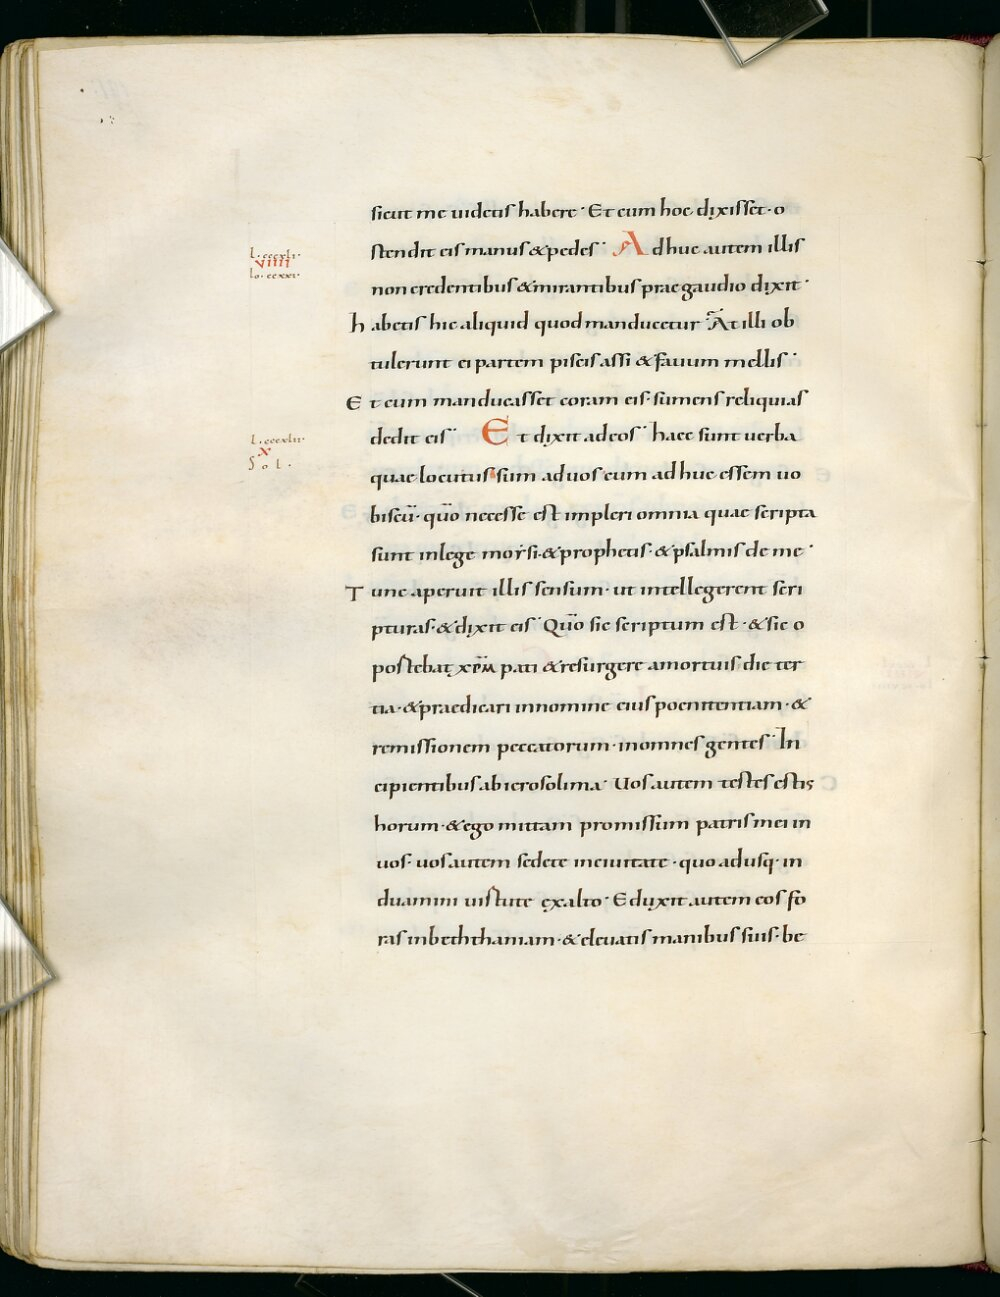 sicut me uidetis habere· Et cum hoc dixisset· o
stendit eis manus &pedes· Adhuc autem illis
L·cccxli·
VIIII
Io·ccxxi·
non credentibus &mirantibus prae gaudio dixit·
habetis hic aliquid quod manducetur· At illi ob
tulerunt ei partem piscis assi & fauum mellis·
Et cum manducasset coram eis· sumens reliquias
dedit eis· Et dixit ad eos· haec sunt uerba
L·cccxlii·
X
Sol·
quae locutus sum ad uos cum adhuc essem uo
biscū· quō necesse est impleri omnia quae scripta
sunt inlege morsi·&prophetis·&psalmis de me·
Tunc aperuit illis sensum· ut intellegerent scri
pturas·&dixit eis· Quō sic scriptum est·&sic o
postebat xp̄m pati &resurgere amortuis die ter
tia·&praedicari innomine eius poenitentiam·&
remissionem peccatorum· inomnes gentes· In
cipientibus abierosolima· Uos autem testes estis
horum·&ego mittam promissum patris mei in
uos· uos autem sedete inciuitate· quoadusq· in
duamini uistute exalto· Eduxit autem eos fo
ras inbeththaniam·&eleuatis manibus suis· be